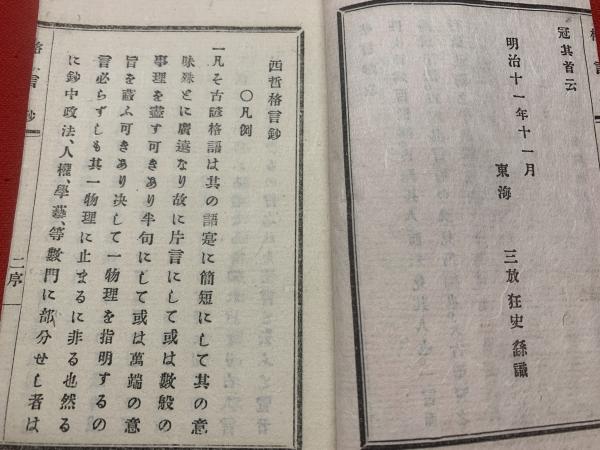 冠其首云
明治十一年十一月
東海 三放狂史 識
西哲格言鈔
〇凡例
一凡そ古諺格語は其の語寔に簡短にして其の意
味殊とに廣遠なり故に片言にして或は數般の
事理を盡す可きあり半句にして或は萬端の意
旨を蔽ふ可きあり决して一物理を指明するの
言必らずしも其一物理に止まるに非る也然る
に鈔中政法、人權、學藝、等數門に部分せし者は
格言鈔
二序
格言